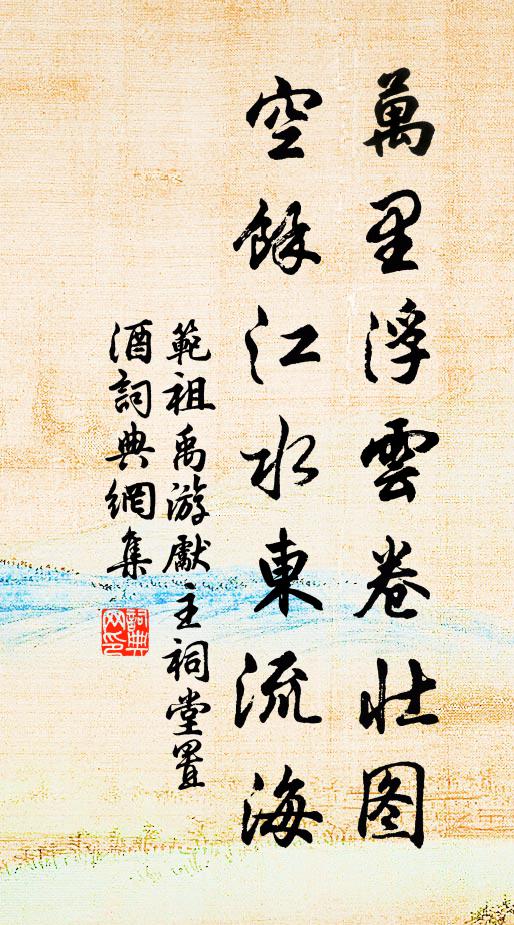 萬里浮雲卷壯图
空餘江水東流海
範祖禹游獻主祠堂置
酒詞典網集
詞典
网印